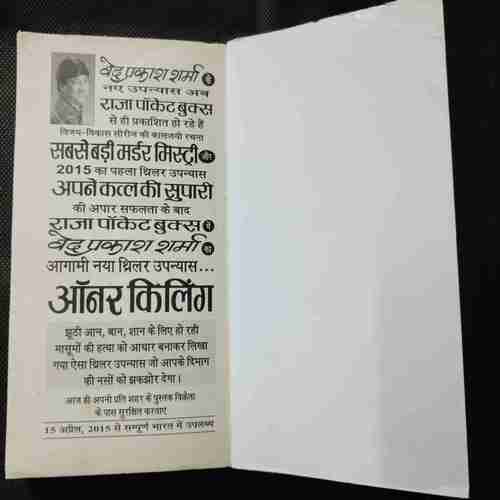 वेद प्रकाश शर्मा के
नए उपन्यास अब
राजा पॉकेट बुक्स
से ही प्रकाशित हो रहे हैं
विजय-विकास सीरीज की कालजयी रचना
सबसे बड़ी मर्डर मिस्ट्री और
2015 का पहला थ्रिलर उपन्यास
अपने कत्ल की सुपारी
की अपार सफलता के बाद
राजा पॉकेट बुक्स में
वेद प्रकाश शर्मा का
आगामी नया थ्रिलर उपन्यास...
ऑनर किलिंग
झूठी आन, बान, शान के लिए हो रही
मासूमों की हत्या को आधार बनाकर लिखा
गया ऐसा थ्रिलर उपन्यास जो आपके दिमाग
की नसों को झकझोर देगा।
आज ही अपनी प्रति शहर के पुस्तक विक्रेता
के पास सुरक्षित करवाएं
15 अप्रैल, 2015 से सम्पूर्ण भारत में उपलब्ध